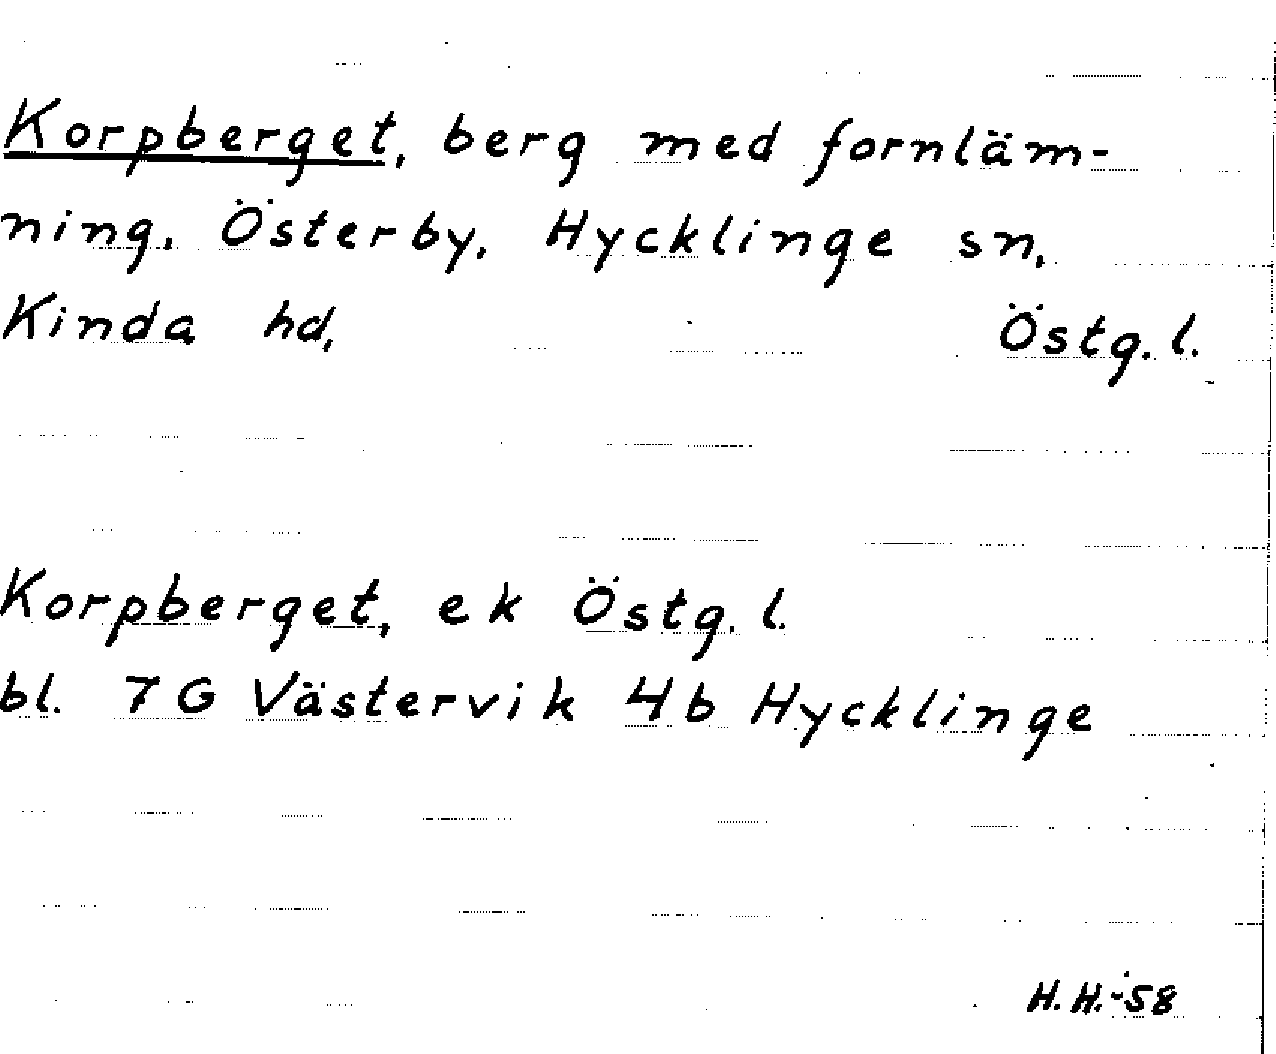 Korpberget, berg med fornläm-
ning, Österby, Hycklinge sn,
Kinda hd, Östg. l.
Korpberget, ek Östg. l.
bl. 7 G Västervik 4b Hycklinge
H.H.-58